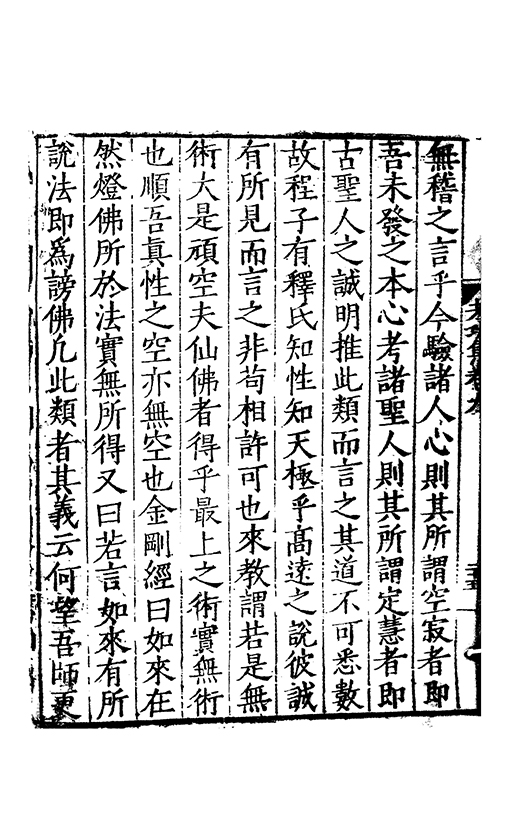 無稽之言乎今驗諸人心則其所謂空寂者即
吾未發之本心考諸聖人則其所謂定慧者即
古聖人之誠明推此類而言之其道不可悉數
故程子有釋氏知性知天極乎髙遠之說彼誠
有所見而言之非苟相許可也來教謂若是無
術大是頑空夫仙佛者得乎最上之術實無術
也順吾真性之空亦無空也金剛經曰如來在
然燈佛所於法實無所得又曰若言如來有所
說法即爲謗佛凢此類者其義云何望吾師更